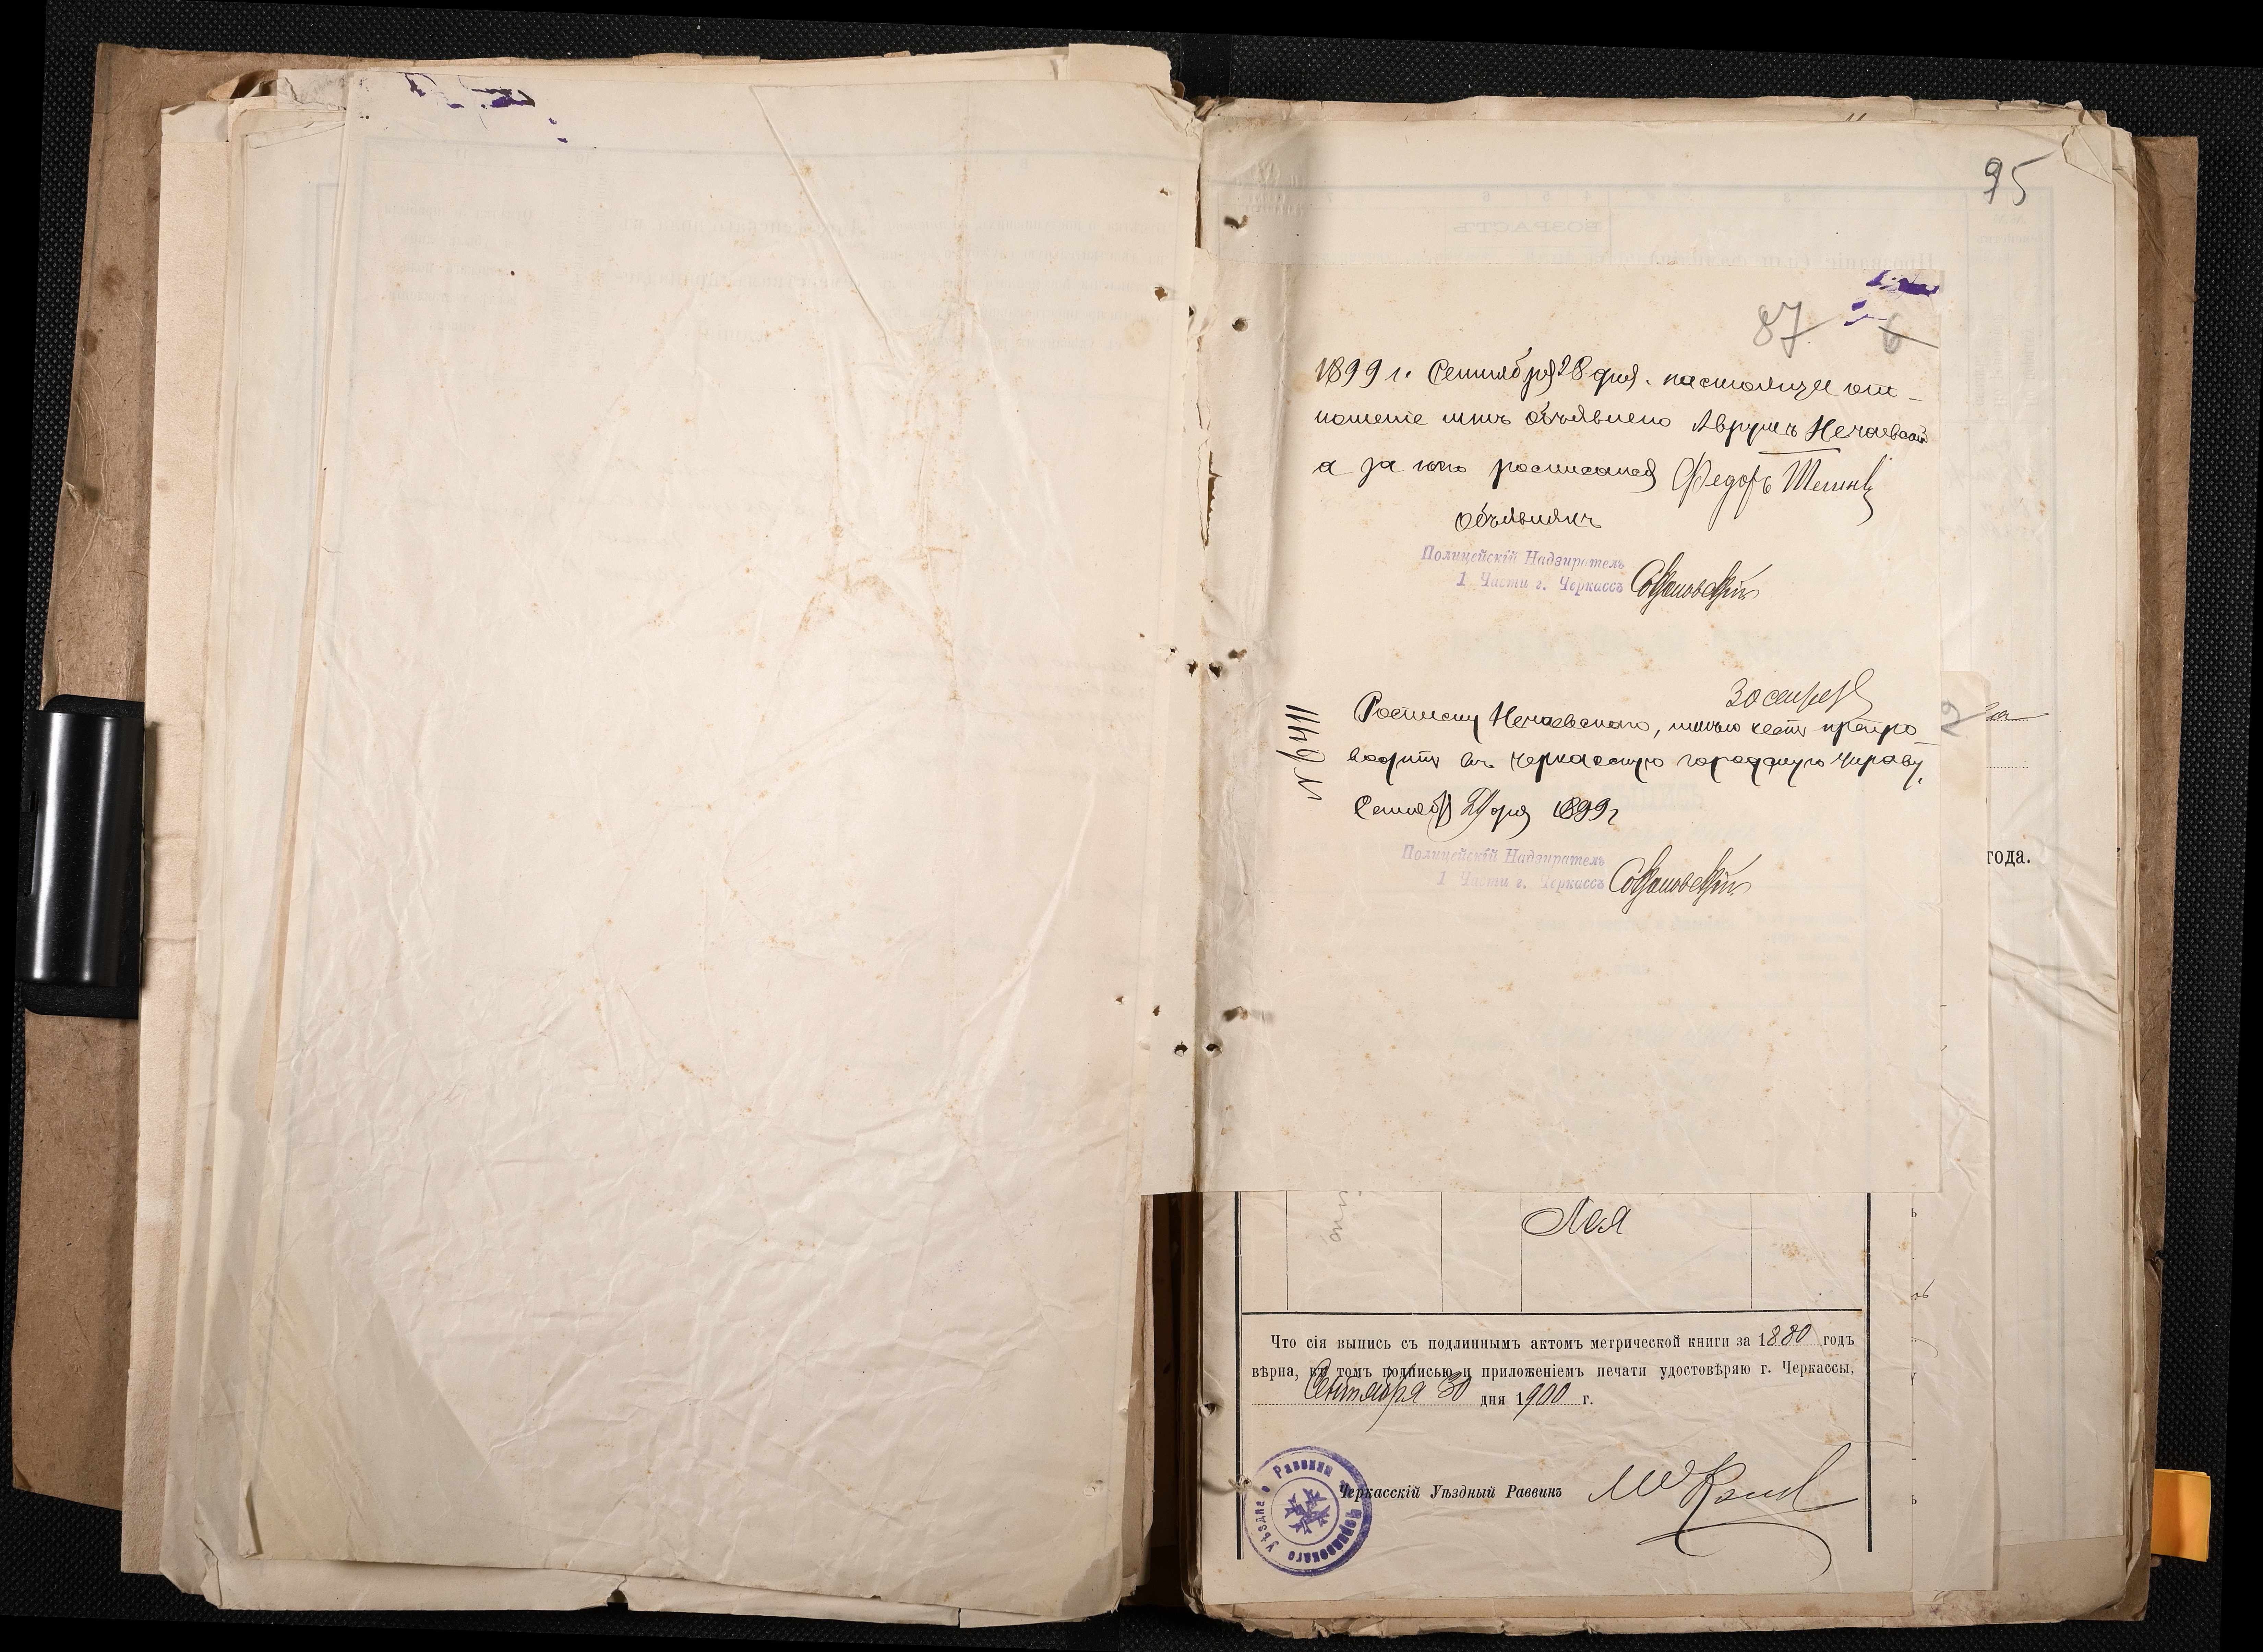 95
87 6
1899 г. Сентября 28 дня. настоящее от-
ношение мнѣ объявлено Аврумъ Нечаевский
а за него росписался Федоръ
Объявилъ
Полицейскій Надзиратель
1 Части г. Черкассъ
30 сентяб
Росписку Нечаевского, имѣю честь препро-
водить въ Черкасскую городскую Управу,
Сентяб дня 1899 г
№ 6411
Полицейскій Надзиратель
1 Части г. Черкассъ
года.
Лея
Что сія выпись съ подлиннымъ актомъ метрической книги за 1880 годъ
вѣрна, въ томъ подписью и приложеніемъ печати удостовѣряю г. Черкассы,
Сентября 30 дня 1900 г.
Черкасскій Уѣздный Раввинъ